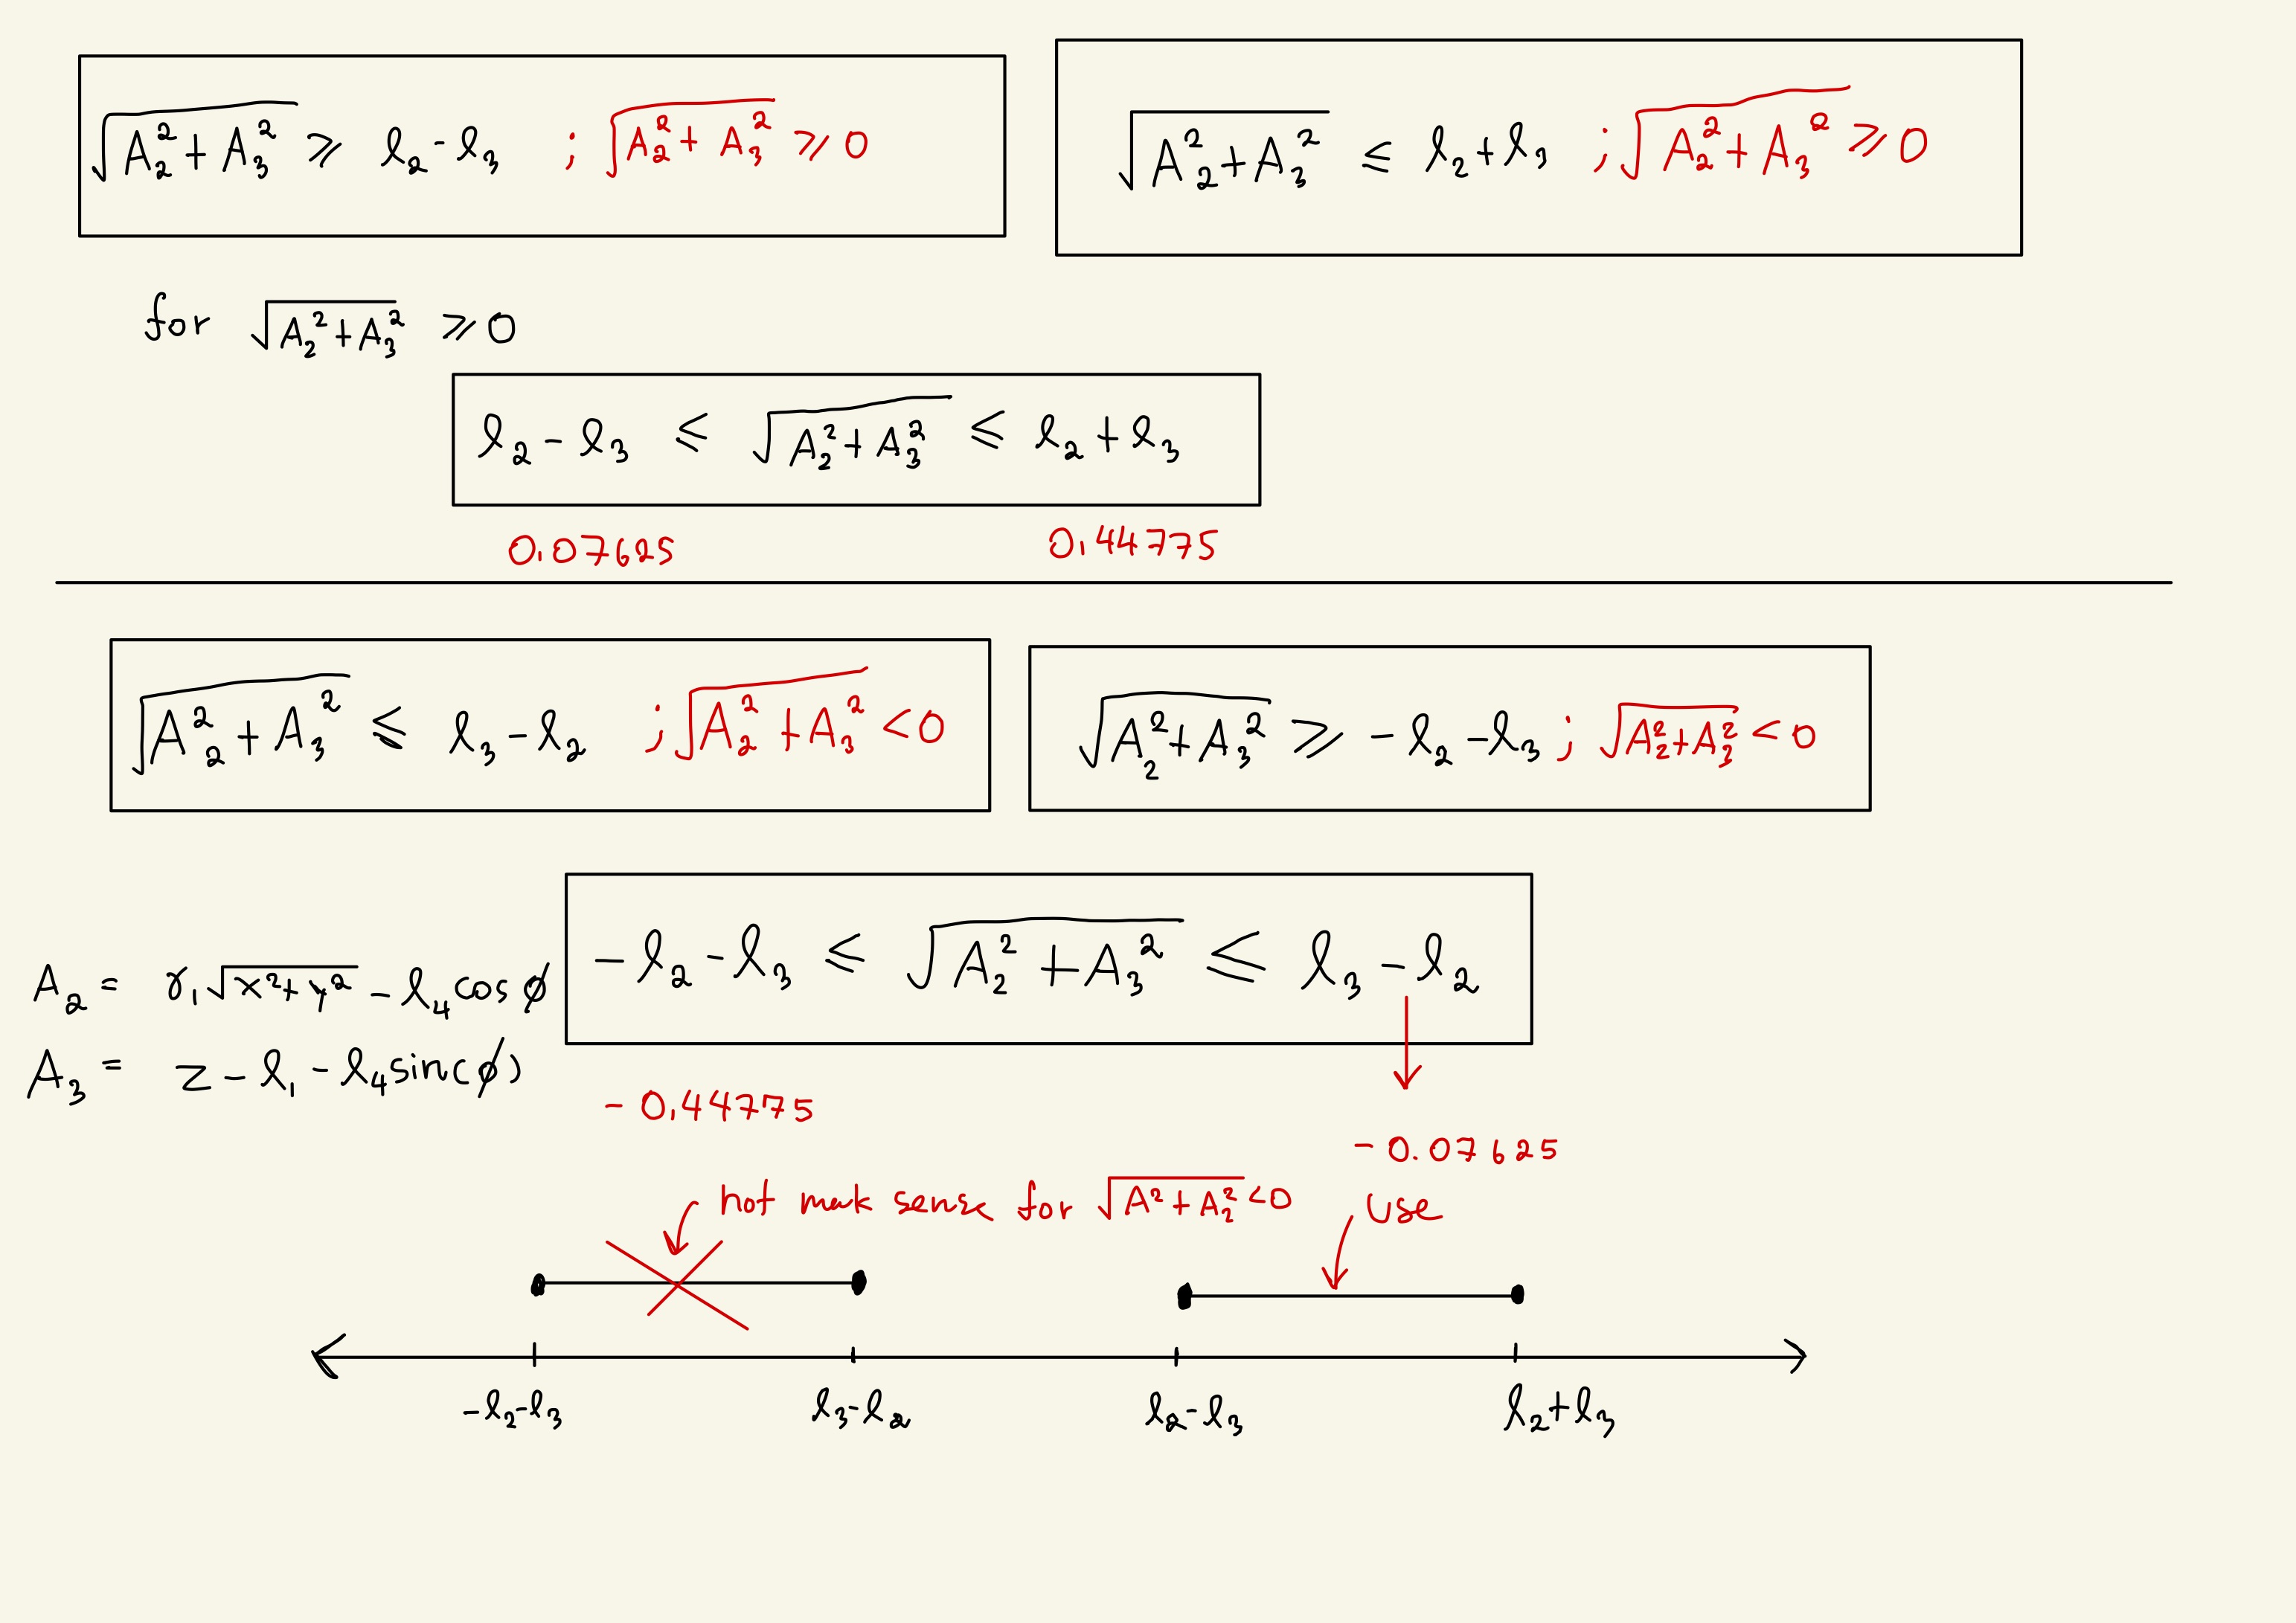 √(A₂² + A₃²) ⩾ l₂ - l₃ ; √(A₂² + A₃²) ⩾ 0
√(A₂² + A₃²) ≤ l₂ + l₃ ; √(A₂² + A₃²) ⩾ 0
for √(A₂² + A₃²) ⩾ 0
l₂ - l₃ ≤ √(A₂² + A₃²) ≤ l₂ + l₃
0.07625 0.44775
√(A₂² + A₃²) ≤ l₃ - l₂ ; √(A₂² + A₃²) < 0
√(A₂² + A₃²) ⩾ - l₂ - l₃ ; √(A₂² + A₃²) < 0
- l₂ - l₃ ≤ √(A₂² + A₃²) ≤ l₃ - l₂
A₂ = γ₁√(x² + y²) - l₄cos ϕ
A₃ = z - l₁ - l₄sin(ϕ)
- 0.44775
- 0.07625
not mak sense for √(A² + A₂²) < 0
use
-l₂-l₃ l₃-l₂ l₂-l₃ l₂+l₃